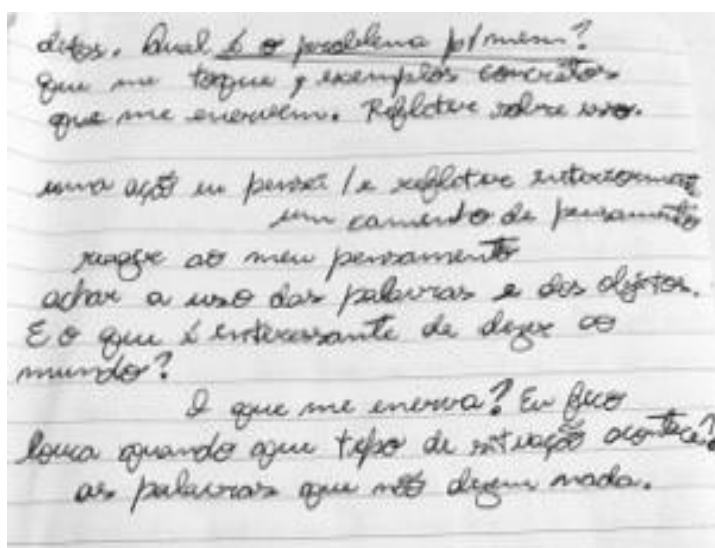 ditos. Qual é o problema p/ mim?
Que me toque, exemplos concretos
que me enervem. Refletir sobre isso.
uma ação eu pensei / e refletir interiormente
um caminho de pensamento
reagir ao meu pensamento
achar a uso das palavras e dos objetos.
E o que é interessante de dizer ao
mundo?
O que me enerva? Eu fico
louca quando que tipo de situação acontece?
as palavras que não dizem nada.